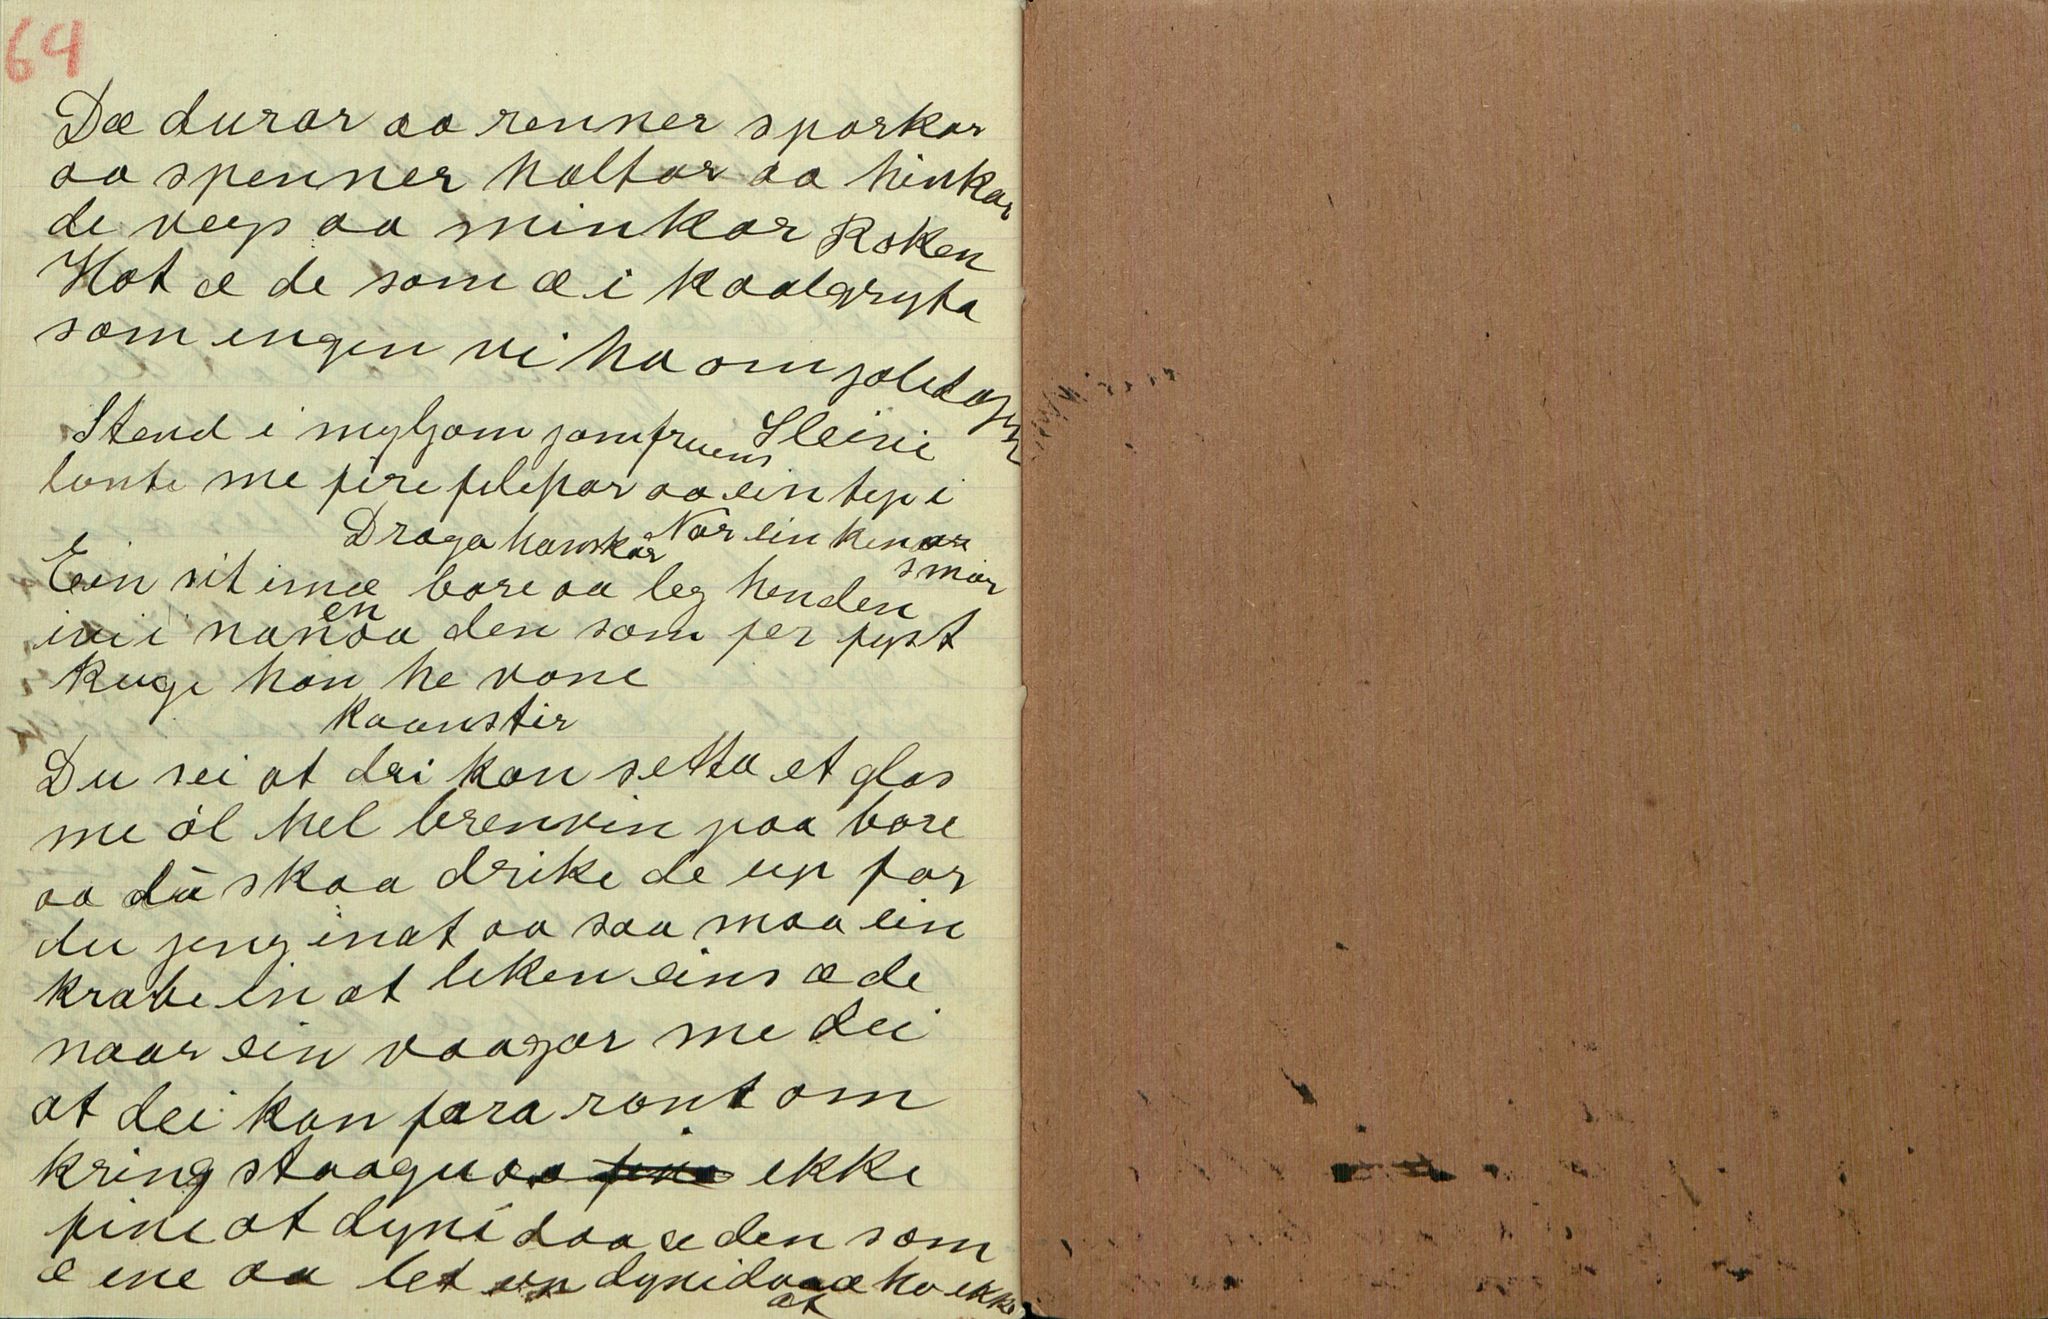 64
Dæ durar aa renner sparkar
aa spenner haltar aa hinkar
de veys aa minkar Roken
Hot æ de som æ i kaalgryta
som engen vi ha om joletdagen
Stend i myljom jomfruens Sleivi
lonte me fire filepar aa ein tep i
Draga hanskar Nar ein henar smør
Ein sit imæ bore aa leg henden
ivi i nanen aa den som fer fyst
kuge han he vone
kaanstir
Du sei at dei kan setta et glas
me øl hel brenvin paa bore
aa du skaa drike de up før
du jeng inat aa saa maa ein
krabe in at leken eins æ de
naar ein vaagar me dei
at dei kan fara ront om
kring staagu aa ekke
fine at dyni daa æ den som
æ ine aa let up dynidaa æ ho ekke
at